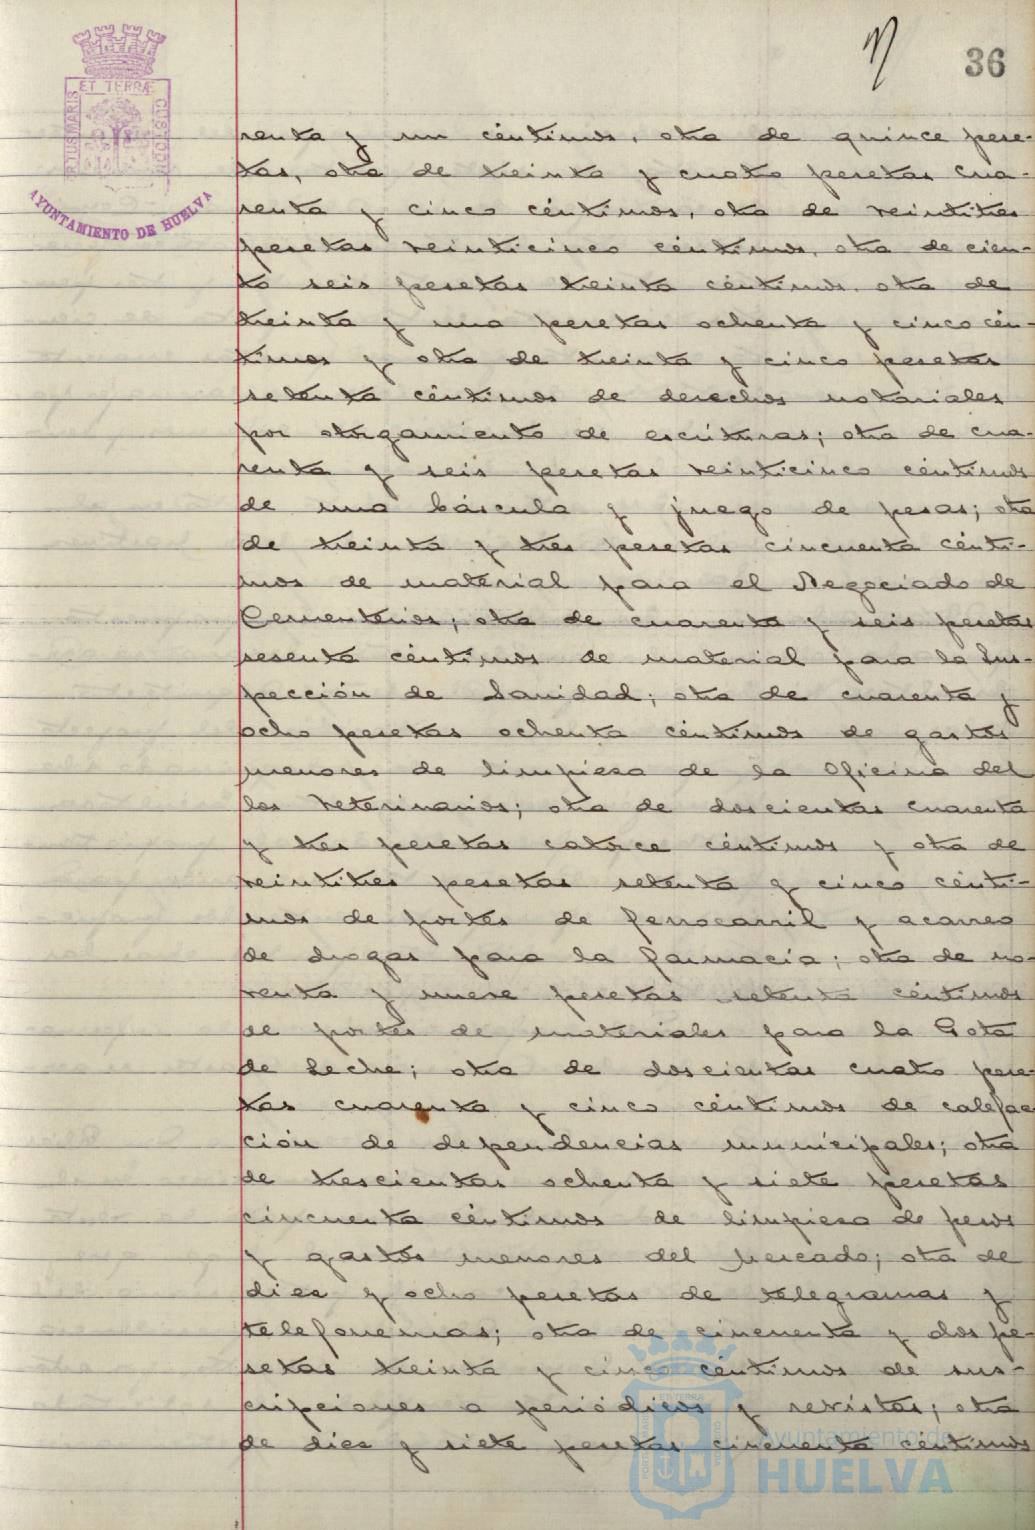 36
PORTUS MARIS ET TERRÆ CUSTODIA
AYUNTAMIENTO DE HUELVA
renta y un céntimos, otra de quince pese-
tas, otra de treinta y cuatro pesetas cua-
renta y cinco céntimos, otra de veintitres
pesetas veinticinco céntimos, otra de cien-
to seis pesetas treinta céntimos, otra de
treinta y una pesetas ochenta y cinco cén-
timos y otra de treinta y cinco pesetas
setenta céntimos de derechos notariales
por otorgamiento de escrituras; otra de cua-
renta y seis pesetas veinticinco céntimos
de una báscula y juego de pesas; otra
de treinta y tres pesetas cincuenta cénti-
mos de material para el Negociado de
Cementerios; otra de cuarenta y seis pesetas
sesenta céntimos de material para la Ins-
pección de Sanidad; otra de cuarenta y
ocho pesetas ochenta céntimos de gastos
menores de limpieza de la Oficina del
los Veterinarios; otra de doscientas cuarenta
y tres pesetas catorce céntimos y otra de
veintitres pesetas setenta y cinco cénti-
mos de portes de ferrocarril y acarreo
de drogas para la farmacia; otra de no-
venta y nueve pesetas setenta céntimos
de portes de materiales para la Gota
de Leche; otra de doscientas cuatro pese-
tas cuarenta y cinco céntimos de calefac-
ción de dependencias municipales; otra
de trescientas ochenta y siete pesetas
cincuenta céntimos de limpieza de pesos
y gastos menores del Mercado; otra de
diez y ocho pesetas de telegramas y
telefonemas; otra de cincuenta y dos pe-
setas treinta y cinco céntimos de sus-
cripciones a periódicos y revistas; otra
de diez y siete pesetas cincuenta céntimos
Ayuntamiento de
HUELVA